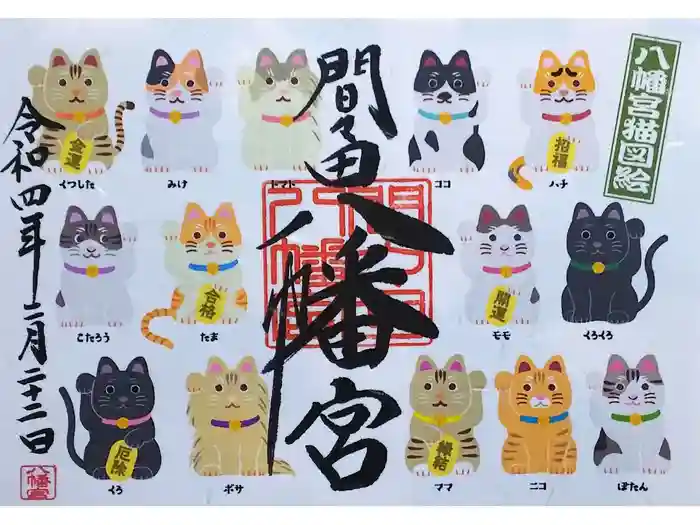 八幡宮猫図絵
間々田八幡宮
令和四年二月二十二日
八幡宮
金運
招福
合格
開運
厄除
縁結
くつした
みけ
トマト
ココ
ハチ
こたろう
たま
モモ
くろくろ
くろ
ボサ
ママ
ニコ
ぼたん